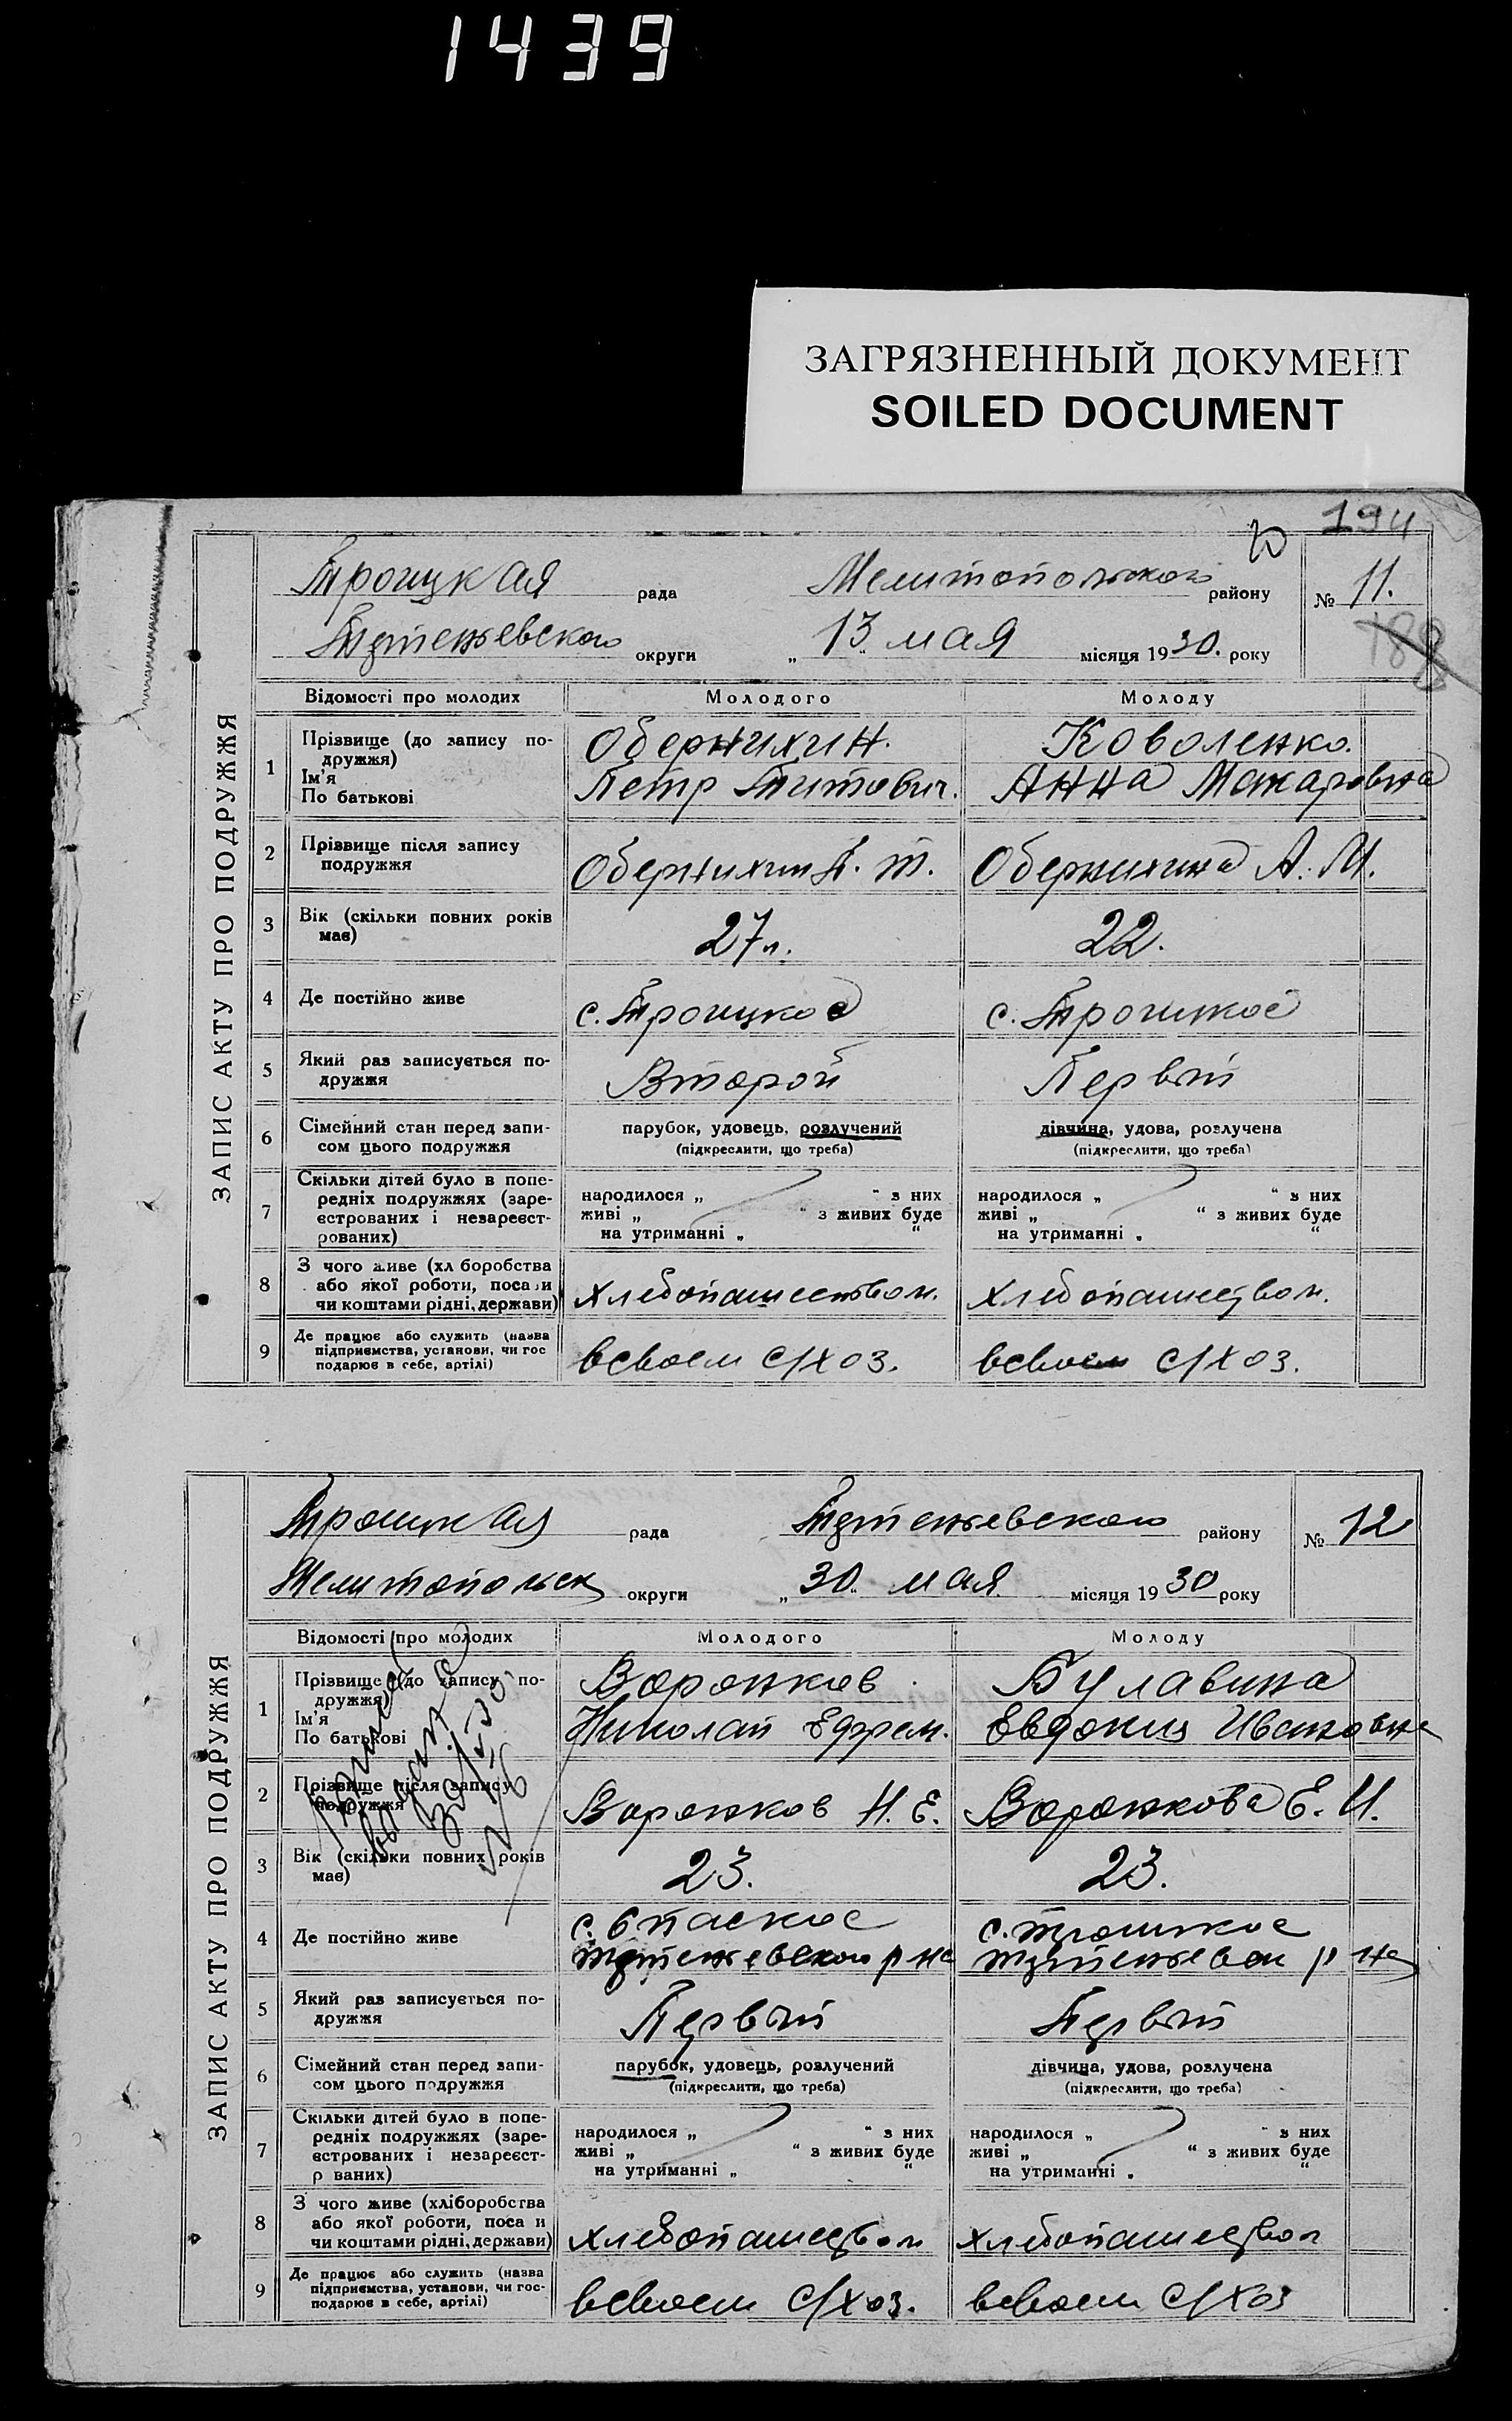 1439
ЗАГРЯЗНЕННЫЙ ДОКУМЕНТ
SOILED DOCUMENT
194
ЗАПИС АКТУ ПРО ПОДРУЖЖЯ
Троицкая рада Мелитопольского району № 11.
округи „ 13 " мая місяця 1930. року
188
Відомості про молодих Молодого Молоду
1 Прізвище (до запису подружжя) Ім'я По батькові
Обернихин. Коволенко.
Петр Титович. Анна Макаровна
2 Прізвище після запису подружжя
Обернихин П. Т. Обернихина А. М.
3 Вік (скільки повних років має)
27 л. 22.
4 Де постійно живе
с. Троицкое с. Троицкое
5 Який раз записується подружжя
Второй Первый
6 Сімейний стан перед записом цього подружжя
парубок, удовець, розлучений дівчина, удова, розлучена
(підкреслити, що треба) (підкреслити, що треба)
7 Скільки дітей було в попередніх подружжях (зареєстрованих і незареєстрованих)
народилося „ " з них народилося „ " з них
живі „ " з живих буде живі „ " з живих буде
на утриманні „ " на утриманні „ "
8 З чого живе (хл боробства або якої роботи, поса и чи коштами рідні, держави)
хлебопашеством. хлебопашеством.
9 Де працює або служить (назва підприємства, установи, чи гос подарює в себе, артілі)
всвоем с/хоз. всвоем с/хоз.
ЗАПИС АКТУ ПРО ПОДРУЖЖЯ
Троицкая рада району № 12
Мелитопольск округи „ 30 " мая місяця 1930 року
Відомості про молодих Молодого Молоду
1 Прізвище (до запису подружжя) Ім'я По батькові
Воронков Булавина
Николай Ефрем. Евдокия Ивановна
2 Прізвище після запису подружжя
Воронков Н. Е. Воронкова Е. И.
3 Вік (скільки повних років має)
23. 23.
4 Де постійно живе
с. Спаское с. Троицкое
5 Який раз записується подружжя
Первый Первый
6 Сімейний стан перед записом цього подружжя
парубок, удовець, розлучений дівчина, удова, розлучена
(підкреслити, що треба) (підкреслити, що треба)
7 Скільки дітей було в попередніх подружжях (зареєстрованих і незареєстр ваних)
народилося „ " з них народилося „ " з них
живі „ " з живих буде живі „ " з живих буде
на утриманні „ " на утриманні „ "
8 З чого живе (хліборобства або якої роботи, поса и чи коштами рідні, держави)
хлебопашеством хлебопашеством
9 Де працює або служить (назва підприємства, установи, чи господарює в себе, артілі)
всвоем с/хоз. всвоем с/хоз